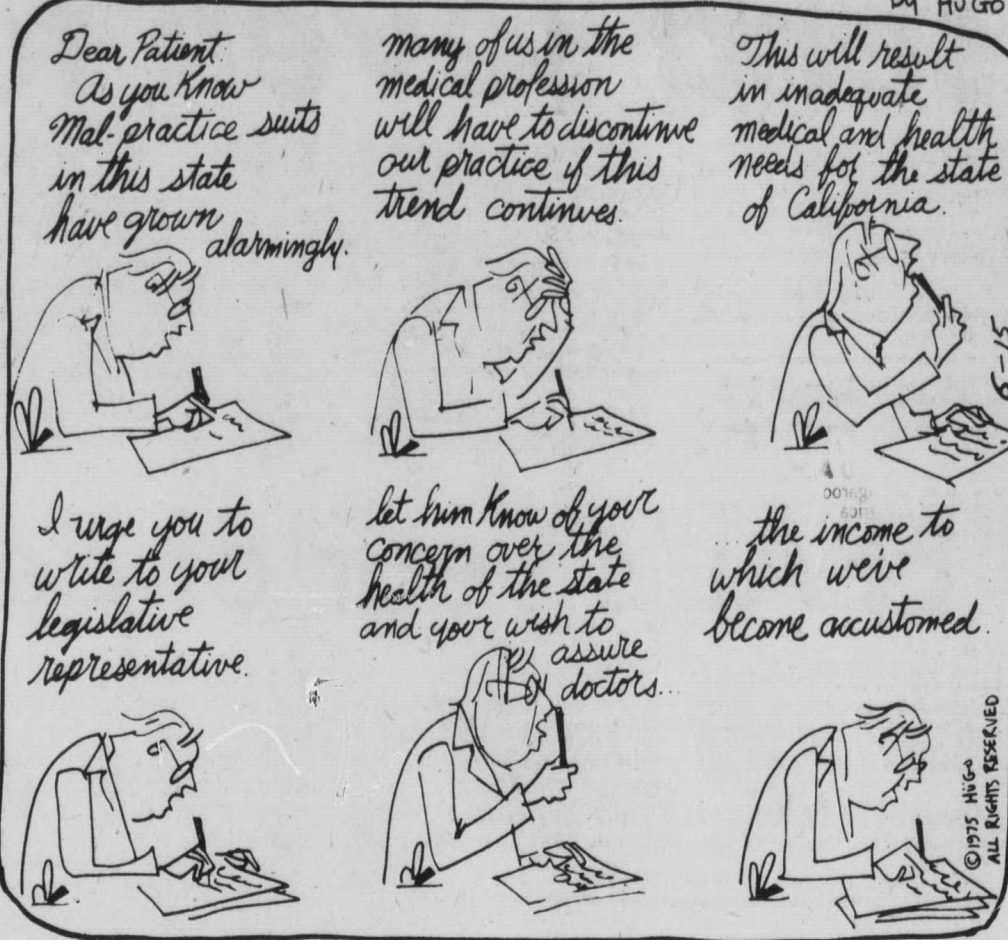 by HUGO
Dear Patient.
As you Know
Mal-practice suits
in this state
have grown
alarmingly.
many of us in the
medical profession
will have to discontinue
our practice if this
trend continues.
This will result
in inadequate
medical and health
needs for the state
of California.
6-15
I urge you to
write to your
legislative
representative.
let him Know of your
concern over the
health of the state
and your wish to
assure
doctors...
...the income to
which we've
become accustomed.
©1975 HUGO
ALL RIGHTS RESERVED